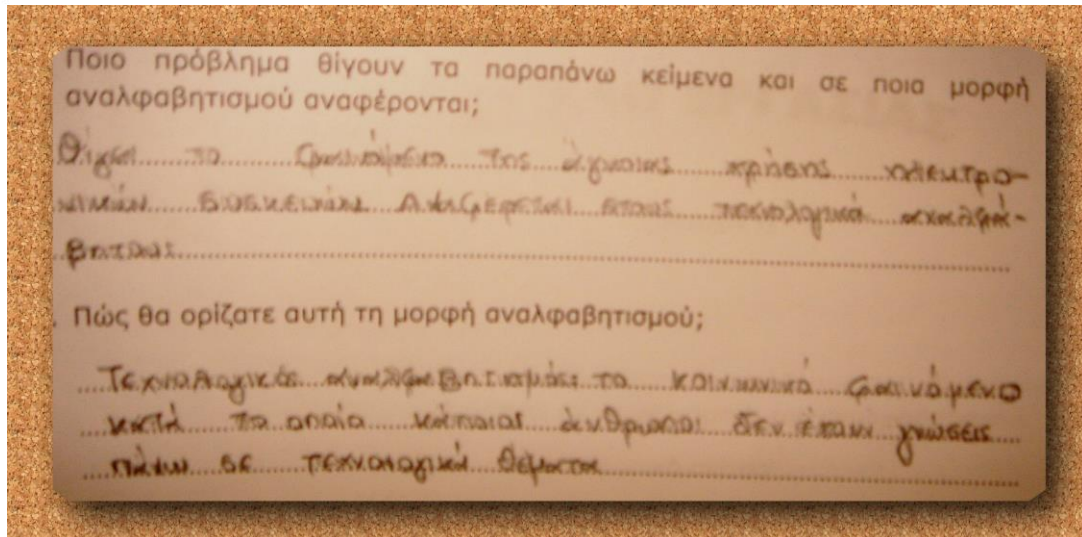 Ποιο πρόβλημα θίγουν τα παραπάνω κείμενα και σε ποια μορφή
αναλφαβητισμού αναφέρονται;
Θίγει το φαινόμενο της άγνοιας χρήσης ηλεκτρο-
νικών συσκευών Αναφέρεται στους τεχνολογικά αναλφά-
βητους
Πώς θα ορίζατε αυτή τη μορφή αναλφαβητισμού;
Τεχνολογικός αναλφαβητισμός: το κοινωνικό φαινόμενο
κατά το οποίο κάποιοι άνθρωποι δεν έχουν γνώσεις
πάνω σε τεχνολογικά θέματα